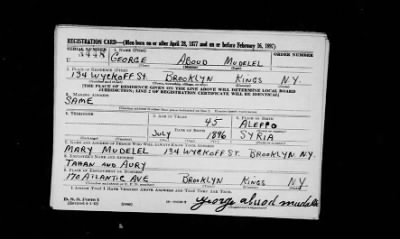 REGISTRATION CARD—(Men born on or after April 28, 1877 and on or before February 16, 1897)
SERIAL NUMBER 1. NAME (Print) ORDER NUMBER
GEORGE ABOUD MUDELEL
(First) (Middle) (Last)
2. PLACE OF RESIDENCE (Print)
134 WYCKOFF ST. BROOKLYN KINGS N.Y.
[THE PLACE OF RESIDENCE GIVEN ON THE LINE ABOVE WILL DETERMINE LOCAL BOARD
JURISDICTION; LINE 2 OF REGISTRATION CERTIFICATE WILL BE IDENTICAL]
3. MAILING ADDRESS
SAME
4. TELEPHONE 5. AGE IN YEARS 6. PLACE OF BIRTH
45 ALEPPO
DATE OF BIRTH
JULY 1896 SYRIA
7. NAME AND ADDRESS OF PERSON WHO WILL ALWAYS KNOW YOUR ADDRESS
MARY MUDELEL 134 WYCKOFF ST. BROOKLYN N.Y.
8. EMPLOYER'S NAME AND ADDRESS
TAHAN AND AURY
9. PLACE OF EMPLOYMENT OR BUSINESS
170 ATLANTIC AVE BROOKLYN KINGS NY
I AFFIRM THAT I HAVE VERIFIED ABOVE ANSWERS AND THAT THEY ARE TRUE.
D. S. S. Form 1
george aboud mudelel